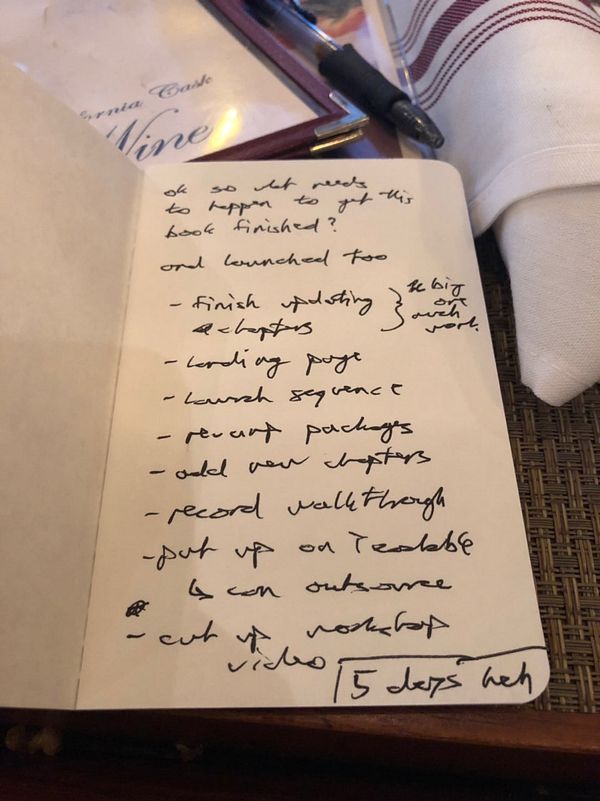 ornia Cask
Wine
ok so what needs
to happen to get this
book finished?
and launched too
- finish updating
chapters
} the big
one
much
work
- landing page
- launch sequence
- revamp packages
- add new chapters
- record walkthrough
- put up on Teachable
↳ can outsource
- cut up workshop
video
5 days